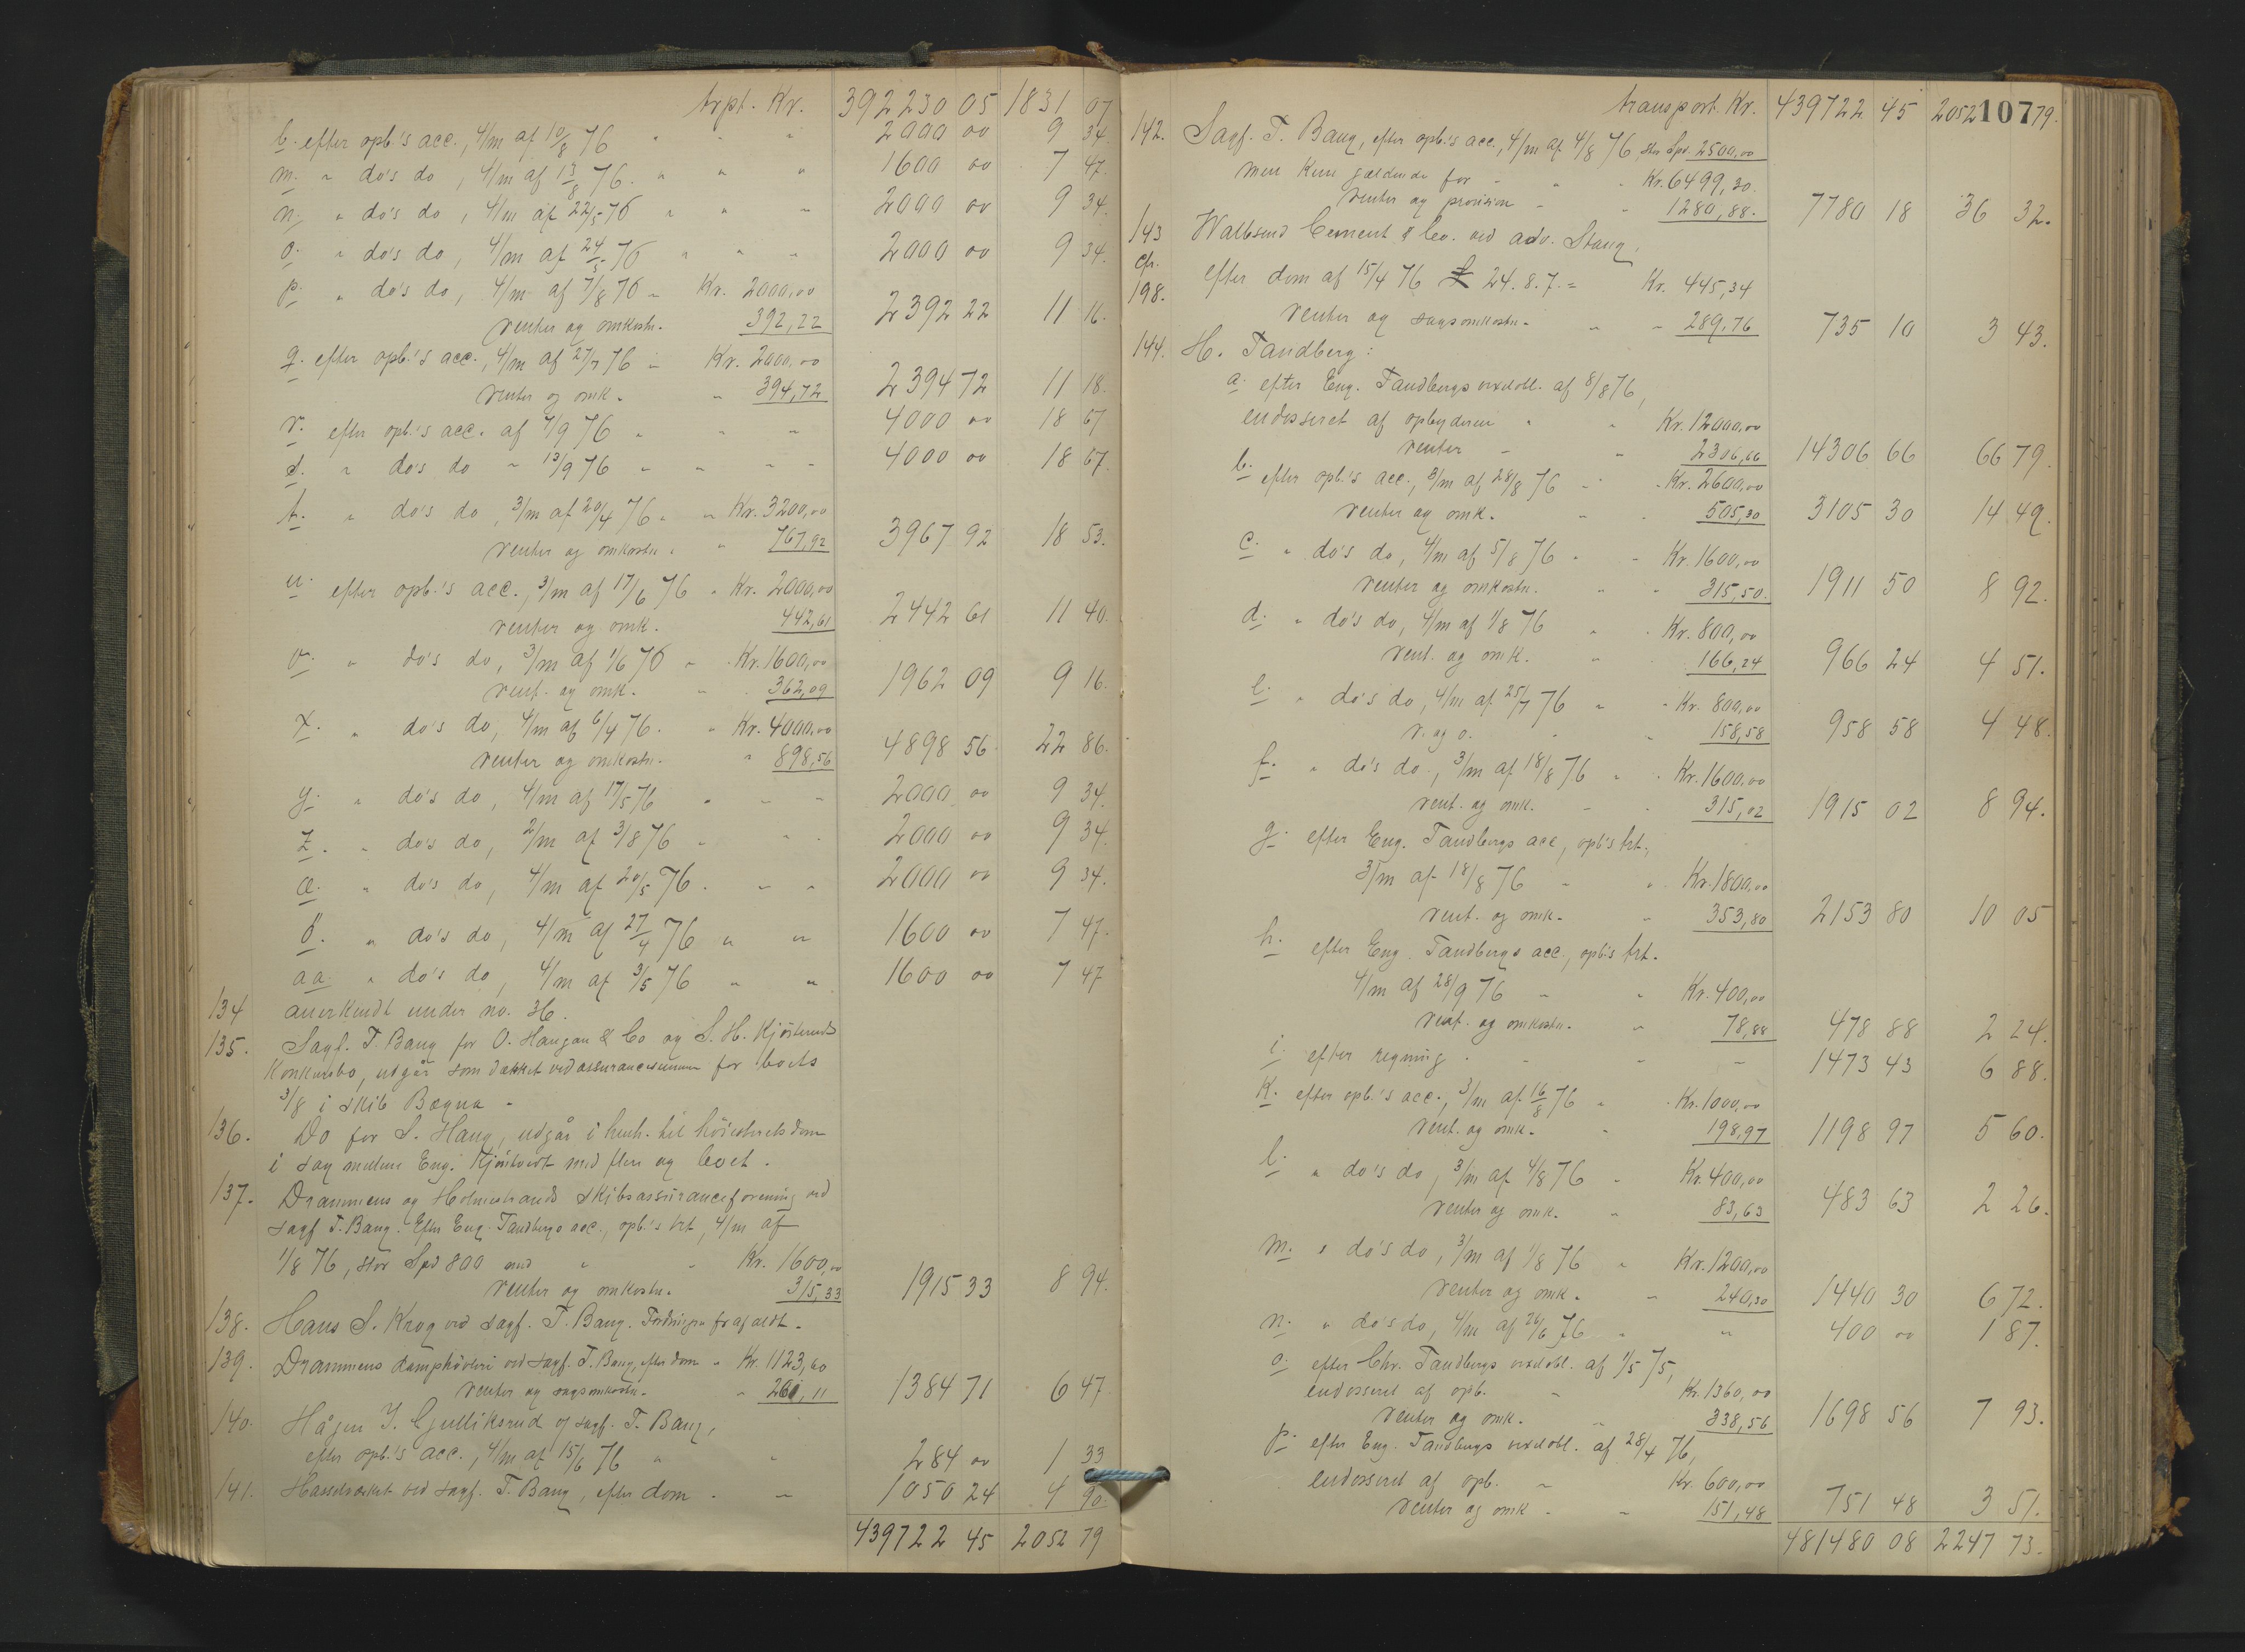 trpt. Kr. 392230 05 1831 07
l. efter opb.'s acc., 4/m af 10/8 76 " " " 2000 00 9 34.
m. " do's do, 4/m af 13/8 76. " " " 1600 00 7 47.
n. " do's do, 4/m af 22/5 76 " " " 2000 00 9 34.
o. " do's do, 4/m af 24/5 76 " " " 2000 00 9 34.
p. " do's do, 4/m af 7/8 76 " Kr. 2000,00
venter og omkostn. 392,22 2392 22 11 16.
q. efter opb.'s acc., 4/m af 27/7 76 " Kr. 2000,00
renter og omk. " 394,72 2394 72 11 18.
r. efter opb.'s acc. af 7/9 76 " " " 4000 00 18 67
s. " do's do " 13/9 76 " " " " 4000 00 18 67.
t. " do's do, 3/m af 20/4 76 " " Kr. 3200,00
renter og omkostn. " " 767,92 3967 92 18 53.
u. efter opb.'s acc., 3/m af 17/6 76 " Kr. 2000,00
renter og omk. 442,61 2442 61 11 40.
v. " do's do, 3/m af 1/6 76 " Kr. 1600,00
rent. og omk. " 362,09 1962 09 9 16.
x. " do's do, 4/m af 6/4 76. " Kr. 4000,00
renter og omkostn. " 898,56 4898 56 22 86.
y. " do's do, 4/m af 17/5 76 " " " 2000 00 9 34.
z. " do's do, 2/m af 3/8 76 " " " 2000 00 9 34.
æ. " do's do, 4/m af 20/5 76. " " 2000 00 9 34.
ö. " do's do, 4/m af 27/4 76 " " 1600 00 7 47.
aa. " do's do, 4/m af 3/5 76 " " 1600 00 7 47
134 anerkendt under no. 36.
135. Sagf. T. Bang for O. Haugan & Co og S. H. Kjösteruds
Konkursbo, udgår som dækket ved assurancesummen for boets
3/8 i skib Bægna -
136. Do for S. Haug, udgår i henh. til höiesteretsdom
i sag mellem Eng. Kjöstvedt med flere og boet.
137. Drammens og Holmestrands skibsassuranceforening ved
sagf T. Bang. Efter Eng. Tandbergs acc., opb.'s trt, 4/m af
1/8 76, stor Spd 800 med " " Kr. 1600,00
renter og omkostn. 315,33 1915 33 8 94.
138. Hans S. Krog ved sagf. T. Bang. Fordringen frafaldt.
139. Drammens damphövleri ved sagf. T. Bang, efter dom " Kr. 1123,60
renter og sagsomkostn. " 261,11 1384 71 6 47
140. Hågen I. Gulliksrud v/ sagf. T. Bang,
efter opb.'s acc., 4/m af 15/6 76 " " 284 00 1 33
141. Hasselværket ved sagf. T. Bang, efter dom. " 1050 24 4 90.
439722 45 2052 79
107
transport. Kr. 439722 45 2052 79.
142. Sagf. T. Bang, efter opb.'s acc., 4/m af 4/8 76 stor Spd. 2500,00
men kun gældende for " " " Kr. 6499,30.
renter og provision " " 1280,88. 7780 18 36 32.
143 Wallsend Cement & Co. ved adv. Stang,
cfr. 198. efter dom af 15/4 76 £ 24. 8. 7. = Kr. 445,34
renter og sagsomkostn. " " 289,76 735 10 3 43.
144. H. Tandberg:
a. efter Eng. Tandbergs vexelobl. af 8/8 76,
endosseret af opbyderen " " Kr. 12000,00
renter " " 2306,66 14306 66 66 79.
b. efter opb.'s acc., 3/m af 28/8 76 " Kr. 2600,00
renter og omk. " " 505,30 3105 30 14 49.
c. " do's do, 4/m af 5/8 76 " " Kr. 1600,00
renter og omkostn. " " 315,50. 1911 50 8 92.
d. " do's do, 4/m af 1/8 76 " " Kr. 800,00
rent. og omk. " 166,24 966 24 4 51.
e. " do's do, 4/m af 25/7 76 " " Kr. 800,00
r. og o. " " 158,58 958 58 4 48.
f. " do's do, 3/m af 18/8 76 " " Kr. 1600,00
rent. og omk. " " 315,02 1915 02 8 94.
g. efter Eng. Tandbergs acc, opb's trt.,
3/m af 18/8 76 " " Kr. 1800,00
rent. og omk. " 353,80 2153 80 10 05
h. efter Eng. Tandbergs acc., opb's trt.
4/m af 28/9 76 " " Kr. 400,00
rent. og omkostn. " 78,88 478 88 2 24.
i. efter regning . " " " 1473 43 6 88.
k. efter opb.'s acc., 3/m af 16/8 76 " " Kr. 1000,00
rent. og omk. " 198,97 1198 97 5 60.
l. " do's do, 3/m af 4/8 76 " Kr. 400,00
renter og omk. " 83,63 483 63 2 26.
m. " do's do, 3/m af 1/8 76 " Kr. 1200,00
renter og omk. " 240,30 1440 30 6 72.
n. " do's do, 4/m af 26/6 76 " " 400 00 1 87.
o. efter Chr. Tandbergs vexelobl. af 1/5 75,
endosseret af opb. " Kr. 1360,00
renter og omk. " 338,56 1698 56 7 93.
p. efter Eng. Tandbergs vexelobl. af 28/4 76,
endosseret af opb. " Kr. 600,00
renter og omk " " 151,48 751 48 3 51.
481480 08 2247 73.